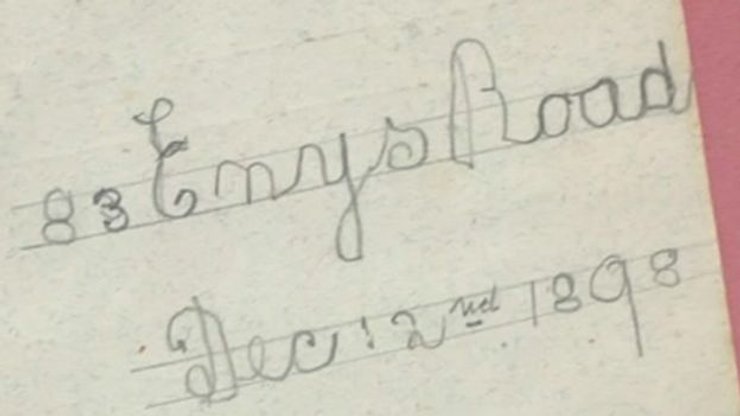 83 Enys Road
Dec: 2nd 1898